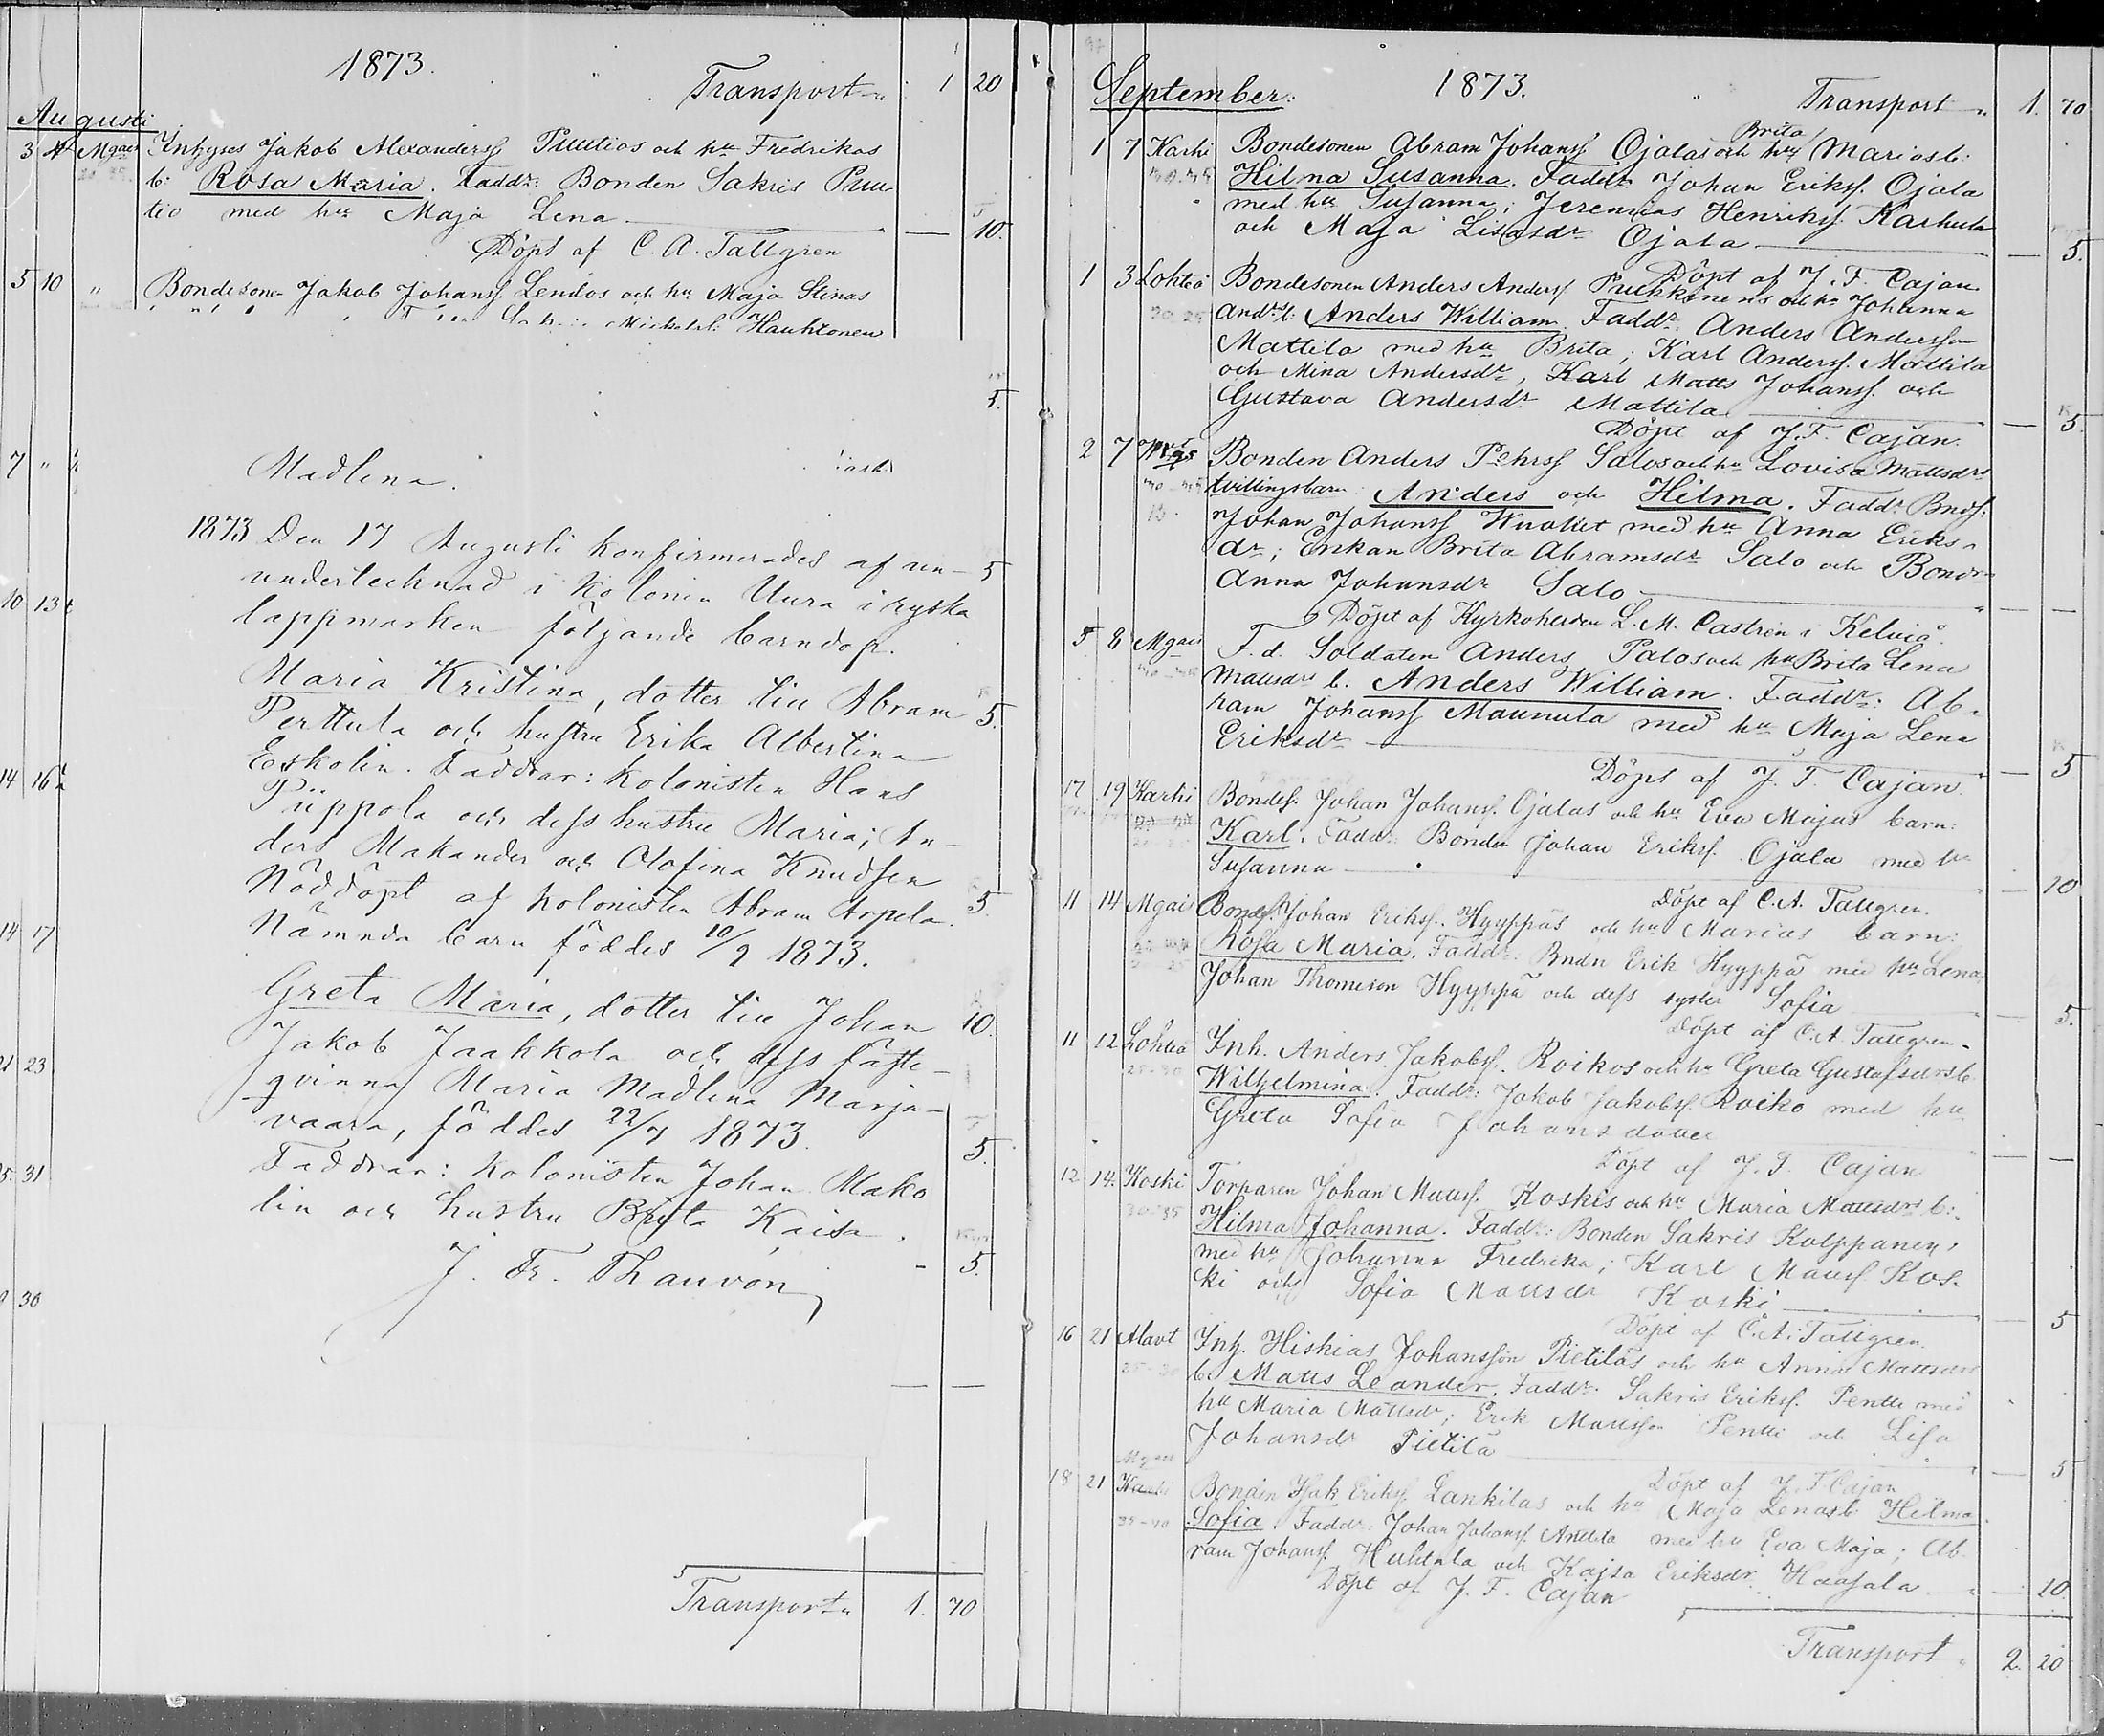 1873.
Transport 1 20
Augusti
3 4 Mgais Inhyses Jakob Alexanderss Puutios och hu Fredrikas
b: Rosa Maria. Faddr: Bonden Sakris Puu
tio med hu Maja Lena — 10.
Döpt af C. A. Tallgren
5 10 " Bondesonen Jakob Johanss. Lendos och hu Maja Stinas
Hauhtonen
5.
7 "
Madlena.
1873 Den 17 Augusti konfirmerades af un- 5
undertecknad i Kolonin Uura i ryska
10 13
lappmarken följande barndop.
Maria Kristina, dotter till Abram
Perttula och hustru Erika Albertina 5.
Eskolin. Faddrar: kolonisten Hans
14 16
Piippola och dess hustru Maria; An-
ders Makander och Olofina Knudsen
Nöddöpt af kolonisten Abram Arpela. 5.
14 17
Nämnda barn föddes 10/9 1873.
Greta Maria, dotter till Johan 10.
Jakob Jaakkola och dess fäste-
21 23
qvinna Maria Madlena Marja-
vaara, föddes 22/7 1873. 5.
Faddrar: kolonisten Johan Mako
5. 31
lin och hustru Brita Kaisa. 5.
J. Fr. Thauvon
30
Transport 1. 70
September: 1873. Transport 1. 70
Brita
1 7 Karhi Bondesonen Abram Johanss. Ojalas och hu Marias b:
Hilma Susanna. Faddr Johan Erikss. Ojala
med hu Susanna; Jeremias Henrikss. Karhula
och Maja Lisasdr Ojala — 5.
Döpt af J. F. Cajan
1 3 Lohteå Bondesonen Anders Anderss Pukkinens och hu Johanna
30 25 Andrs b: Anders William. Faddr. Anders Andersson
Mattila med hu Brita; Karl Anderss. Mattila
och Mina Andersdr, Karl Matts Johanss. och
Gustava Andersdr Mattila — 5.
Döpt af J. F. Cajan.
2 7 Bonden Anders Pehrss Salos och hu Lovisa Mattsdrs
tvillingsbarn Anders och Hilma. Faddr Bnds:
Johan Johanss Wuollet med hu Anna Eriks-
dr; Enkan Brita Abramsdr Salo och Bondr
Anna Johansdr Salo — —
Döpt af Kyrkoherden L. M. Castrén i Kelviå.
5 8 Mgais F. d. Soldaten Anders Palos och hu Brita Lena
Mattsdrs b. Anders William. Faddr: Ab-
ram Johanss Maunula med hu Maja Lena
Eriksdr — 5
Döpt af J. F. Cajan.
17 19 Karhi Bondes. Johan Johanss. Ojalas och hu Eva Majas barn:
Karl. Faddr: Bonden Johan Erikss. Ojala med hu
Susanna — 10
Döpt af C. A. Tallgren.
11 14 Mgais Bondes. Johan Erikss. Hyyppäs och hu Marias barn:
Rosa Maria. Faddr: Bndn Erik Hyyppä med hu Lena,
Johan Thomeson Hyyppä och dess syster Sofia — 5.
Döpt af C. A. Tallgren.
11 12 Lohteå Inh. Anders Jakobss. Roikos och hu Greta Gustafsdrs b.
25-30 Wilhelmina. Faddr: Jakob Jakobss. Roiko med hu
Greta Sofia Johansdotter — —
Döpt af J. F. Cajan
12 14. Koski Torparen Johan Mattss. Koskis och hu Maria Mattsdrs b:
30-35 Hilma Johanna. Faddr: Bonden Sakris Kolppanen,
med hu Johanna Fredrika; Karl Mattss. Kos-
ki och Sofia Mattsdr Koski — 5
Döpt af C. A. Tallgren
16 21 Alavt Inh. Hiskias Johansson Pietiläs och hu Anna Mattsdrs
25-30 b. Matts Leander. Faddr. Sakris Erikss. Pentti med
hu Maria Mattsdr; Erik Mattsson Pentti och Lisa
Johansdr Pietilä — 5
Döpt af J. F. Cajan
Mgais
18 21 Karhi Bonden Isak Erikss. Lankilas och hu Maja Lenas b. Hilma
35-40 Sofia. Faddr. Johan Johanss. Anttila med hu Eva Maja; Ab-
ram Johanss. Huhtala och Kajsa Eriksdr. Haasala — 10.
Döpt af J. F. Cajan
Transport 2. 20